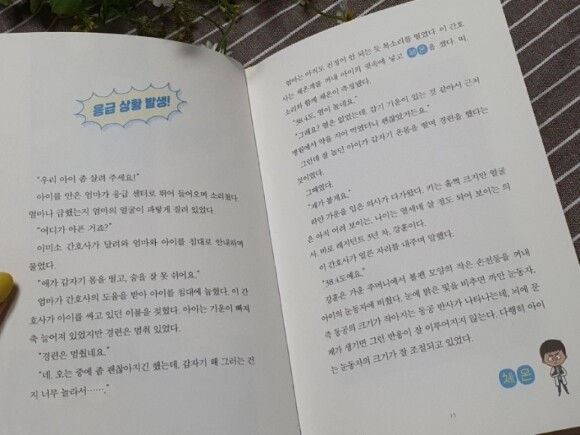 응급 상황 발생!
“우리 아이 좀 살려 주세요!”
아이를 안은 엄마가 응급 센터로 뛰어 들어오며 소리쳤다.
얼마나 급했는지 엄마의 얼굴이 파랗게 질려 있었다.
“어디가 아픈 거죠?”
이미소 간호사가 달려와 엄마와 아이를 침대로 안내하며
물었다.
“애가 갑자기 몸을 떨고, 숨을 잘 못 쉬어요.”
엄마가 간호사의 도움을 받아 아이를 침대에 눕혔다. 이 간
호사가 아이를 싸고 있던 이불을 젖혔다. 아이는 기운이 빠져
축 늘어져 있었지만 경련은 멈춰 있었다.
“경련은 멈췄네요.”
“네. 오는 중에 좀 괜찮아지긴 했는데, 갑자기 왜 그러는 건
지 너무 놀라서…….”
엄마는 아직도 진정이 안 되는 듯 목소리를 떨었다. 이 간호
사는 체온계를 꺼내 아이의 귓속에 넣고 체온을 쟀다. 띠.
소리와 함께 체온이 측정됐다.
“38.4도. 열이 높네요.”
“그래요? 열은 없었는데, 감기 기운이 있는 것 같아서 근처
병원에서 약을 지어 먹였더니 괜찮았거든요.”
그런데 잘 놀던 아이가 갑자기 온몸을 떨며 경련을 했다는
것이었다.
그때였다.
“제가 볼게요.”
하얀 가운을 입은 의사가 다가왔다. 키는 훌쩍 크지만 얼굴
은 아직 어려 보이는, 나이는 열세 살 정도 되어 보이는 의
사. 바로 레지던트 3년 차, 강훈이다.
이 간호사가 얼른 자리를 내주며 말했다.
“38.4도예요.”
강훈은 가운 주머니에서 볼펜 모양의 작은 손전등을 꺼내
아이의 눈동자에 비췄다. 눈에 밝은 빛을 비추면 까만 눈동자,
즉 동공의 크기가 작아지는 동공 반사가 나타나는데, 뇌에 문
제가 생기면 그런 반응이 잘 이루어지지 않는다. 다행히 아이
는 눈동자의 크기가 잘 조절되고 있었다.
체온
11